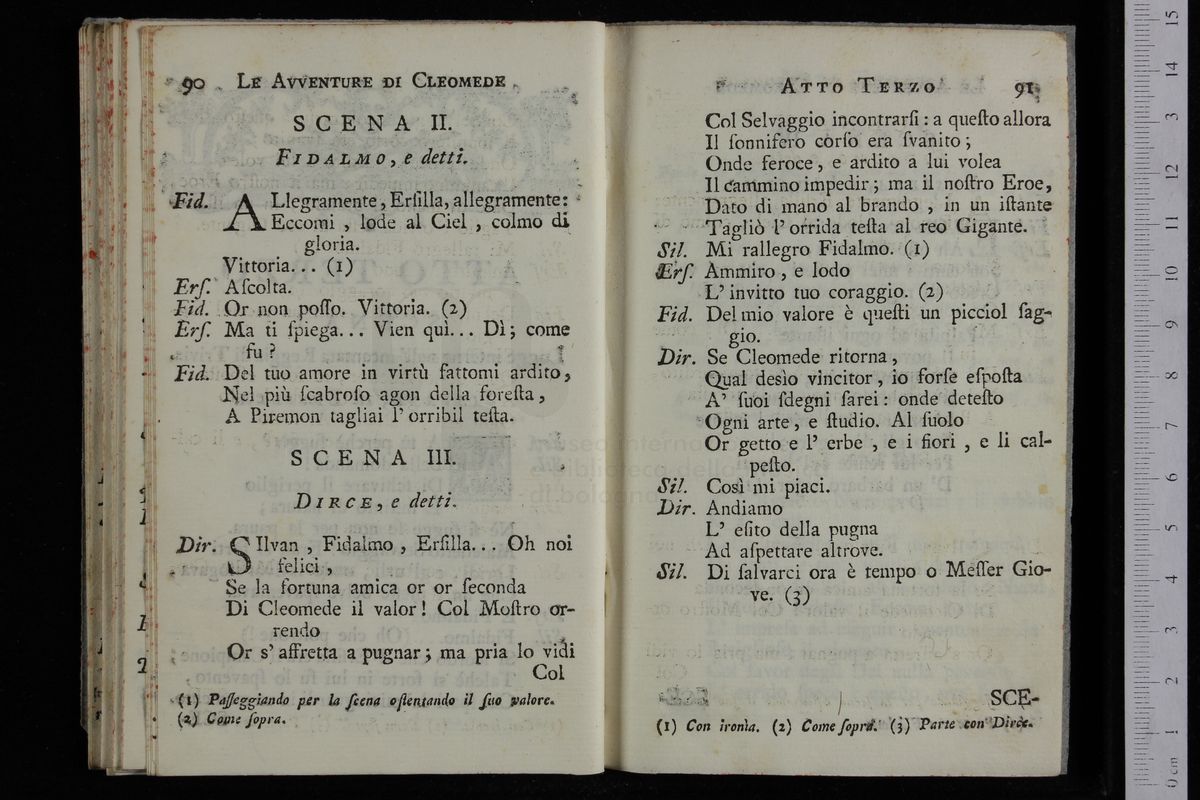 90 LE AVVENTURE DI CLEOMEDE
SCENA II.
FIDALMO, e detti.
Fid. ALlegramente, Erſilla, allegramente:
Eccomi, lode al Ciel, colmo di
gloria.
Vittoria... (1)
Erſ. Aſcolta.
Fid. Or non poſſo. Vittoria. (2)
Erſ. Ma ti ſpiega... Vien quì... Dì; come
fu?
Fid. Del tuo amore in virtù fattomi ardito,
Nel più ſcabroſo agon della foreſta,
A Piremon tagliai l'orribil teſta.
SCENA III.
DIRCE, e detti.
Dir. SIlvan, Fidalmo, Erſilla... Oh noi
felici,
Se la fortuna amica or or ſeconda
Di Cleomede il valor! Col Moſtro or-
rendo
Or s'affretta a pugnar; ma pria lo vidi
Col
(1) Paſſeggiando per la ſcena oſtentando il ſuo valore.
(2) Come ſopra.
ATTO TERZO 91
Col Selvaggio incontrarſi: a queſto allora
Il ſonnifero corſo era ſvanito;
Onde feroce, e ardito a lui volea
Il cammino impedir; ma il noſtro Eroe,
Dato di mano al brando, in un iſtante
Tagliò l'orrida teſta al reo Gigante.
Sil. Mi rallegro Fidalmo. (1)
Erſ. Ammiro, e lodo
L'invitto tuo coraggio. (2)
Fid. Del mio valore è queſti un picciol ſag-
gio.
Dir. Se Cleomede ritorna,
Qual desìo vincitor, io forſe eſpoſta
A' ſuoi ſdegni ſarei: onde deteſto
Ogni arte, e ſtudio. Al ſuolo
Or getto e l'erbe, e i fiori, e li cal-
peſto.
Sil. Così mi piaci.
Dir. Andiamo
L'eſito della pugna
Ad aſpettare altrove.
Sil. Di ſalvarci ora è tempo o Meſſer Gio-
ve. (3)
SCE-
(1) Con ironìa. (2) Come ſopra. (3) Parte con Dirce.